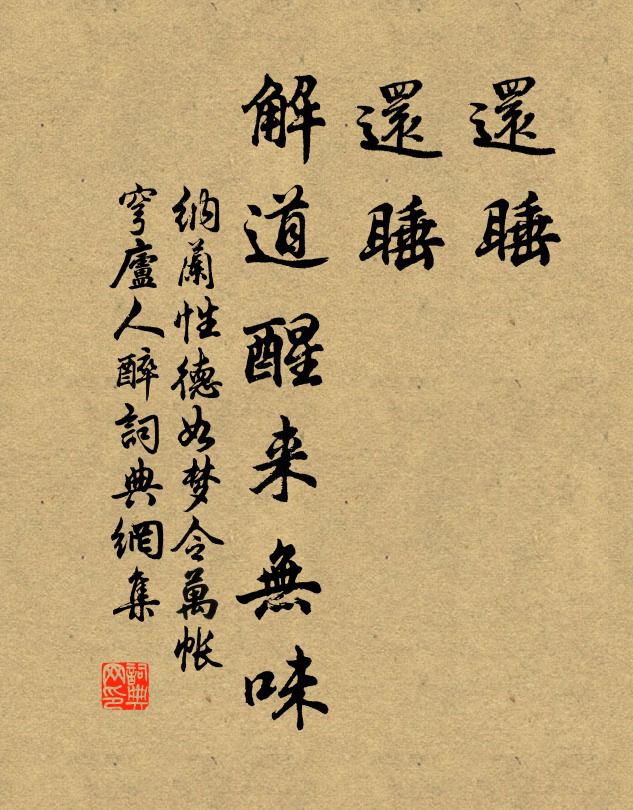 還睡
還睡
解道醒来無味
納蘭性德如梦令萬帐
穹廬人醉詞典網集
詞典
网印